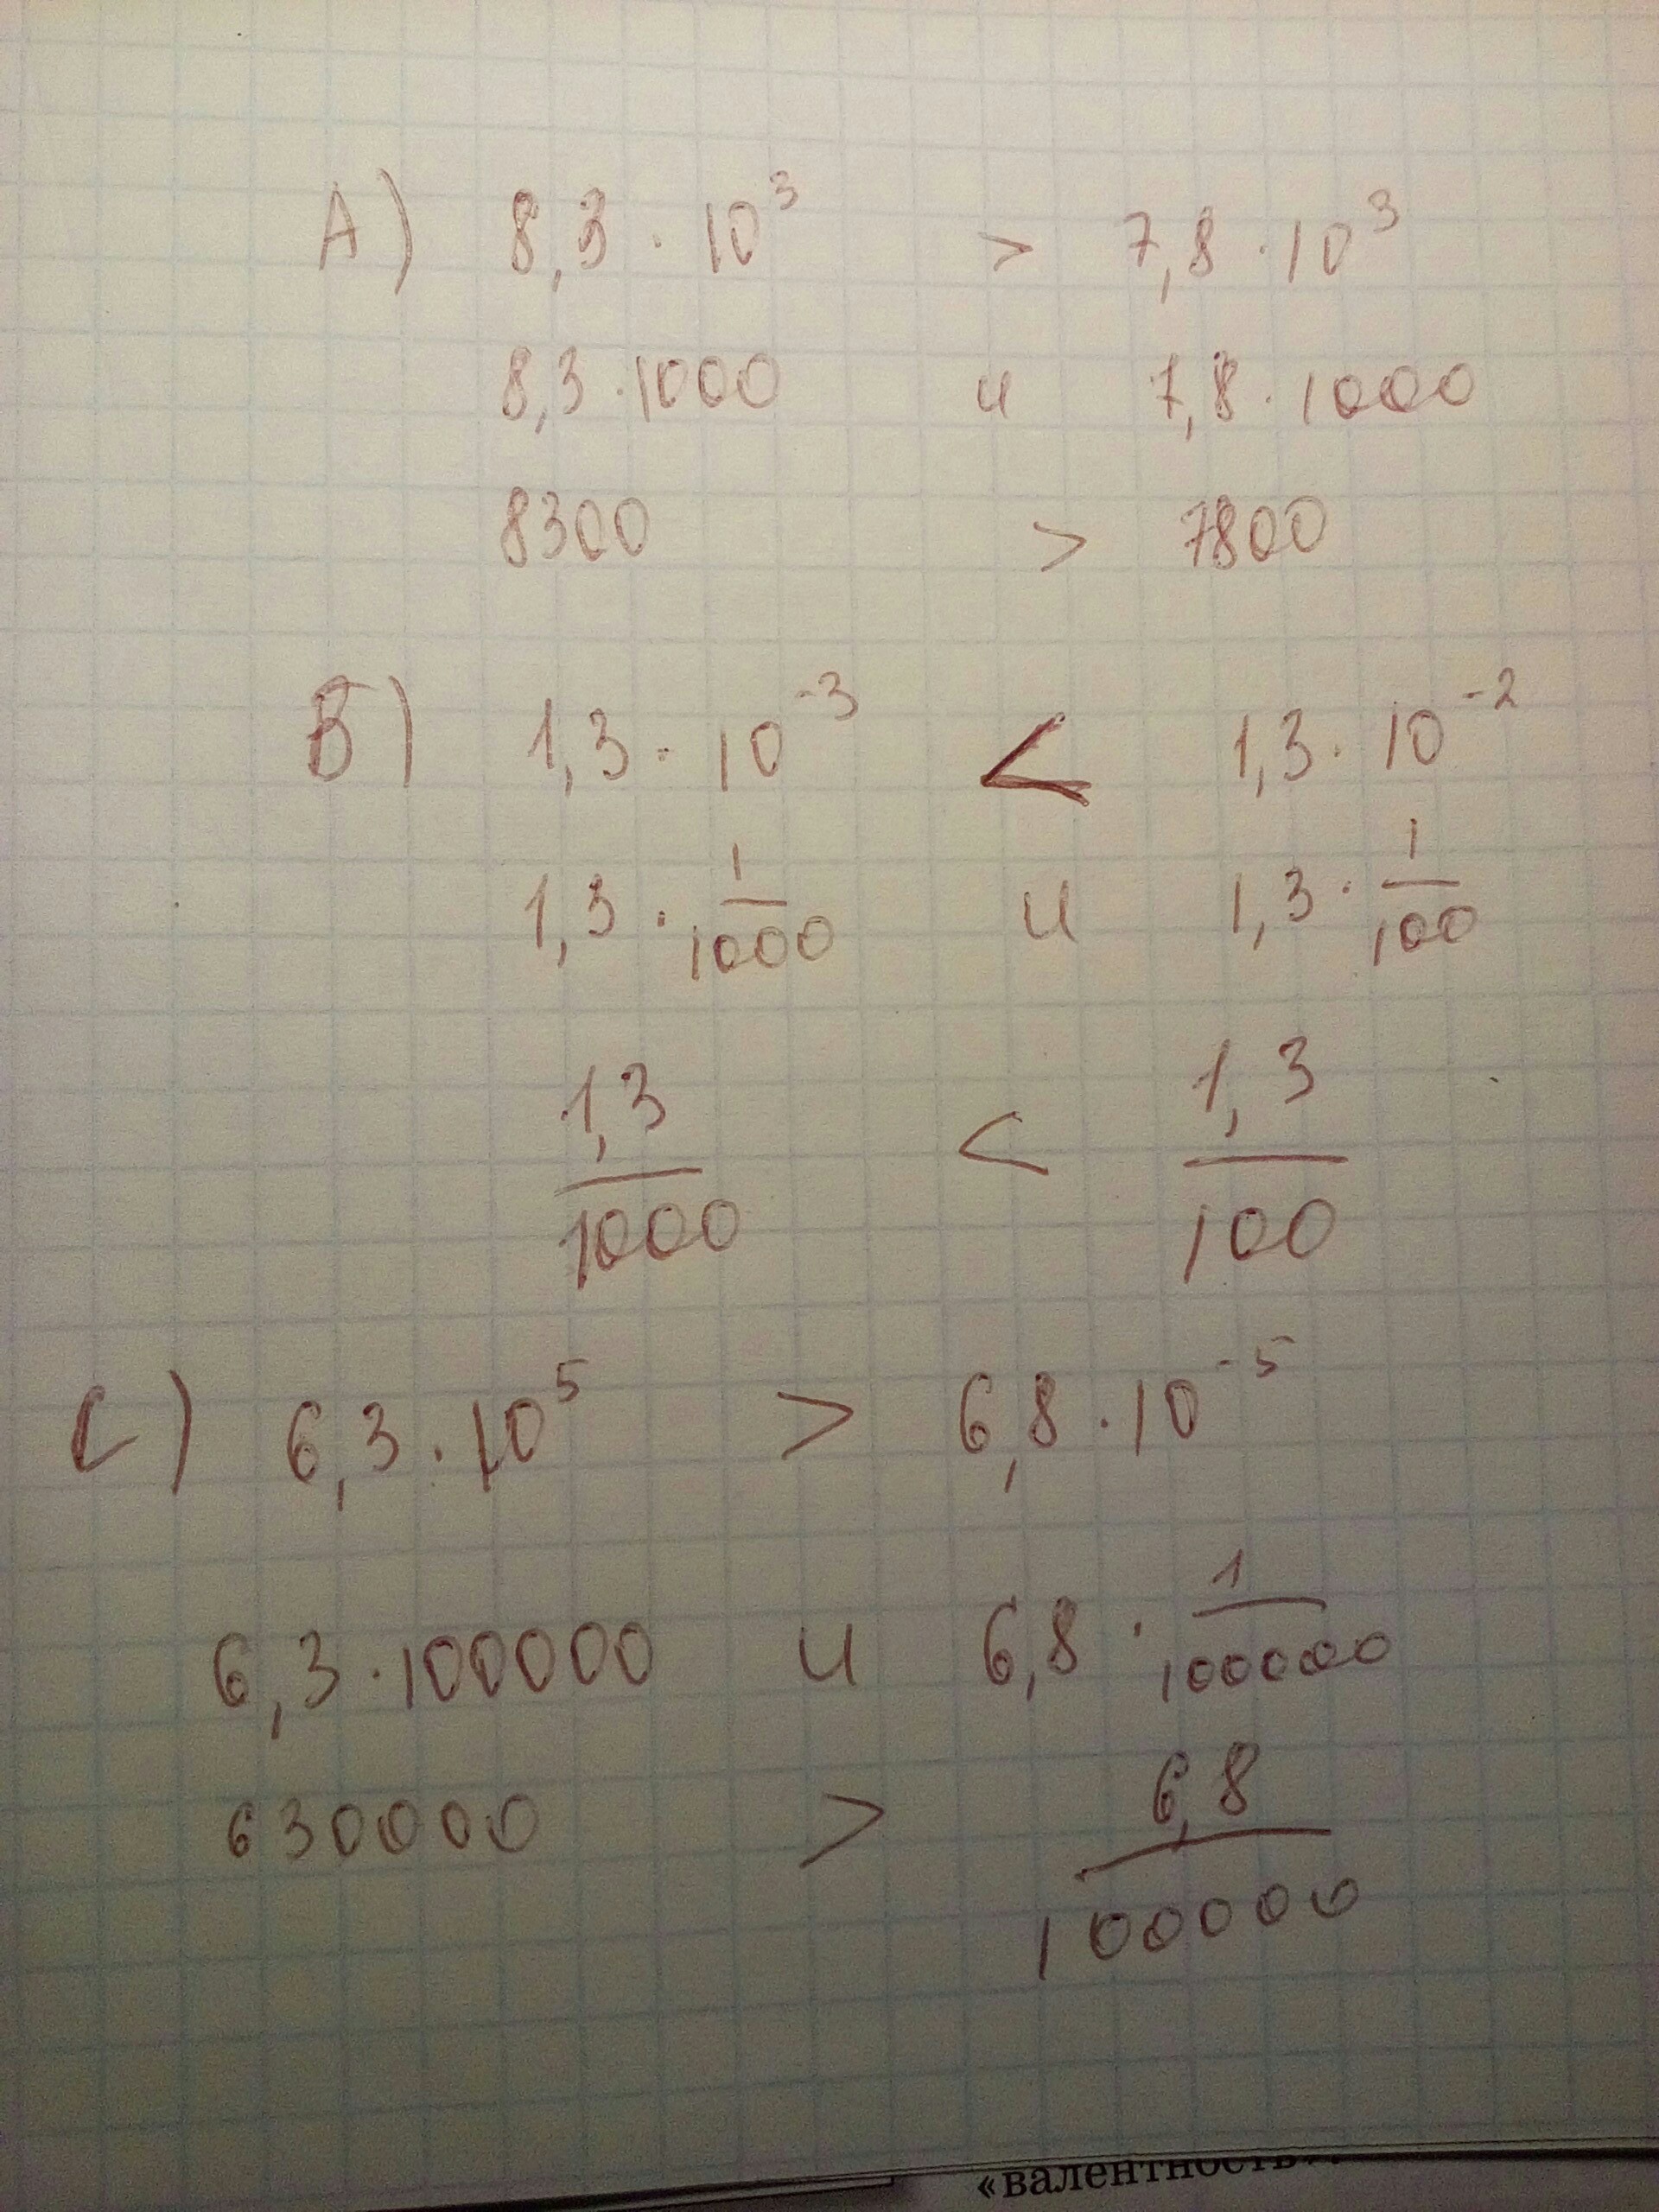 А) 8,3 · 10³ > 7,8 · 10³
8,3 · 1000 и 7,8 · 1000
8300 > 7800
Б) 1,3 · 10⁻³ < 1,3 · 10⁻²
1,3 · 1/1000 и 1,3 · 1/100
1,3/1000 < 1,3/100
С) 6,3 · 10⁵ > 6,8 · 10⁻⁵
6,3 · 100000 и 6,8 · 1/100000
630000 > 6,8/100000
«валентность».